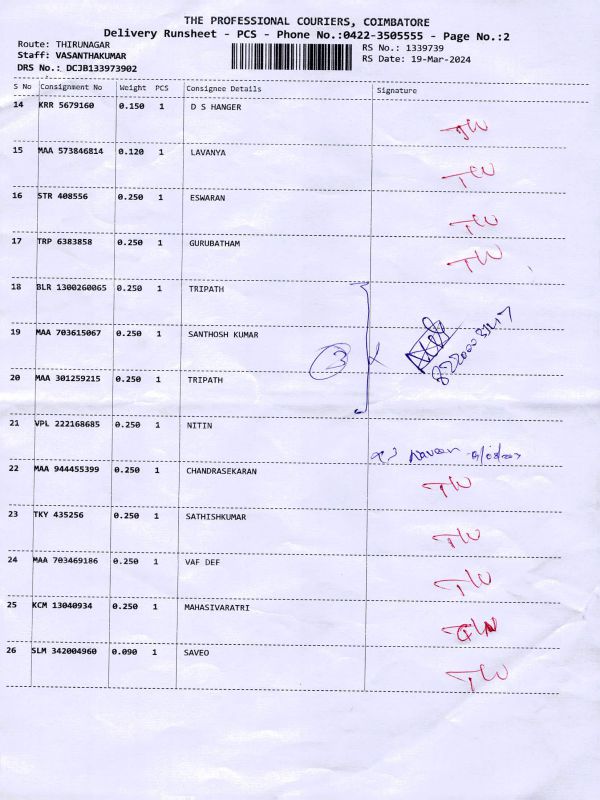 THE PROFESSIONAL COURIERS, COIMBATORE
Delivery Runsheet - PCS - Phone No.:0422-3505555 - Page No.:2
Route: THIRUNAGAR RS No.: 1339739
Staff: VASANTHAKUMAR RS Date: 19-Mar-2024
DRS No.: DCJB133973902
S No Consignment No Weight PCS Consignee Details Signature
14 KRR 5679160 0.150 1 D S HANGER
TW
15 MAA 573846814 0.120 1 LAVANYA
TW
16 STR 408556 0.250 1 ESWARAN
TW
17 TRP 6383858 0.250 1 GURUBATHAM
TW
18 BLR 1300260065 0.250 1 TRIPATH
19 MAA 703615067 0.250 1 SANTHOSH KUMAR
3
20 MAA 301259215 0.250 1 TRIPATH
21 VPL 222168685 0.250 1 NITIN
Naveen
22 MAA 944455399 0.250 1 CHANDRASEKARAN
TW
23 TKY 435256 0.250 1 SATHISHKUMAR
TW
24 MAA 703469186 0.250 1 VAF DEF
TW
25 KCM 13040934 0.250 1 MAHASIVARATRI
26 SLM 342004960 0.090 1 SAVEO
TW